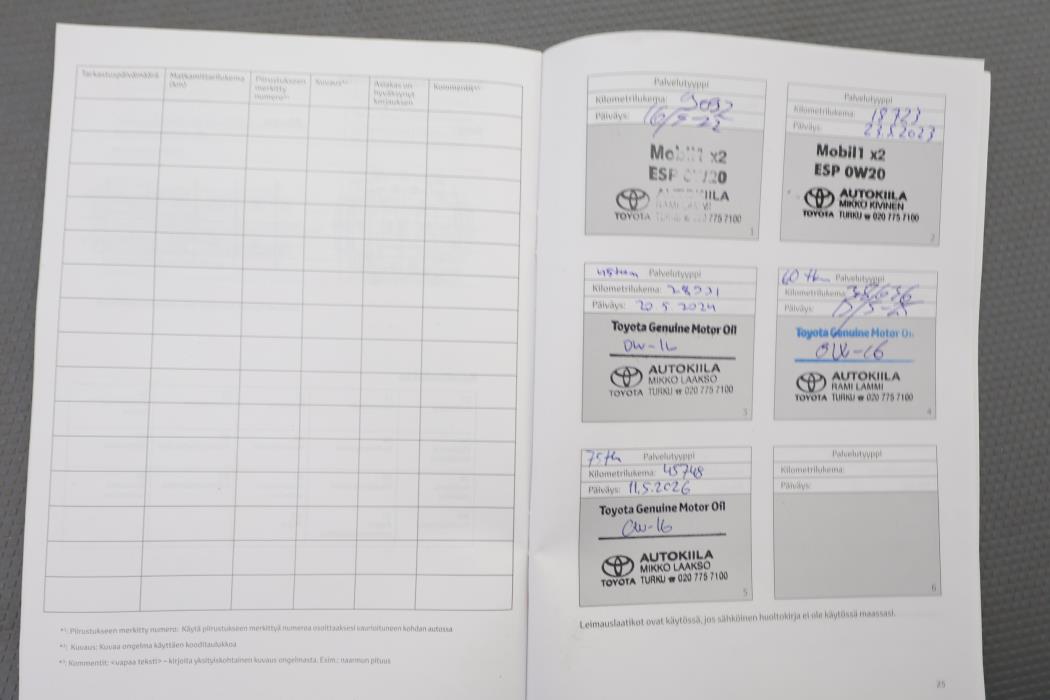 Tarkastuspäivämäärä
Matkamittarilukema (km)
Piirustukseen merkitty numero*¹
Kuvaus*²
Asiakas on hyväksynyt korjauksen
Kommentit*³
*¹: Piirustukseen merkitty numero: Käytä piirustukseen merkittyä numeroa osoittaaksesi vaurioituneen kohdan autossa
*²: Kuvaus: Kuvaa ongelma käyttäen kooditaulukkoa
*³: Kommentit: <vapaa teksti> – kirjoita yksityiskohtainen kuvaus ongelmasta. Esim.: naarmun pituus
Palvelutyyppi
Kilometrilukema: 9092
Päiväys: 16/5-22
Mobil1 x2
ESP 0W20
TOYOTA TURKU ☎ 020 775 7100
1
Palvelutyyppi
Kilometrilukema: 18723
Päiväys: 23.5.2023
Mobil1 x2
ESP 0W20
AUTOKIILA
MIKKO KIVINEN
TOYOTA TURKU ☎ 020 775 7100
2
45tkm Palvelutyyppi
Kilometrilukema: 28921
Päiväys: 20.5.2024
Toyota Genuine Motor Oil
0W-16
AUTOKIILA
MIKKO LAAKSO
TOYOTA TURKU ☎ 020 775 7100
3
60 tkm Palvelutyyppi
Kilometrilukema:
Päiväys:
Toyota Genuine Motor Oil
0W-16
AUTOKIILA
RAMI LAMMI
TOYOTA TURKU ☎ 020 775 7100
4
75tk Palvelutyyppi
Kilometrilukema: 45748
Päiväys: 11.5.2026
Toyota Genuine Motor Oil
0W-16
AUTOKIILA
MIKKO LAAKSO
TOYOTA TURKU ☎ 020 775 7100
5
Palvelutyyppi
Kilometrilukema:
Päiväys:
6
Leimauslaatikot ovat käytössä, jos sähköinen huoltokirja ei ole käytössä maassasi.
25